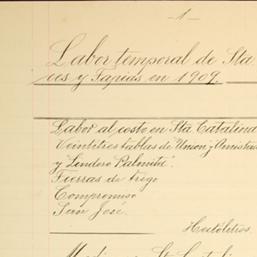 -1-
Labor temporal de Sta
ces y Tapias en 1909.
Labor al costo en Sta Catalina
Veintitres tablas de Union y Amistad
y "Lindero Palmita".
Tierras de trigo
Compromiso
San José
Hectólitros.